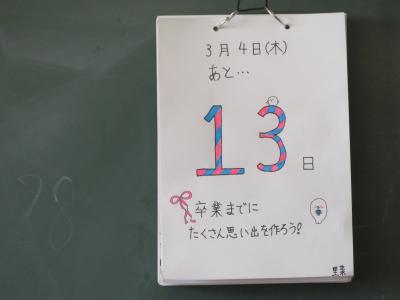 3月4日(木)
あと…
13日
卒業までに
たくさん思い出を作ろう!
里菜
28